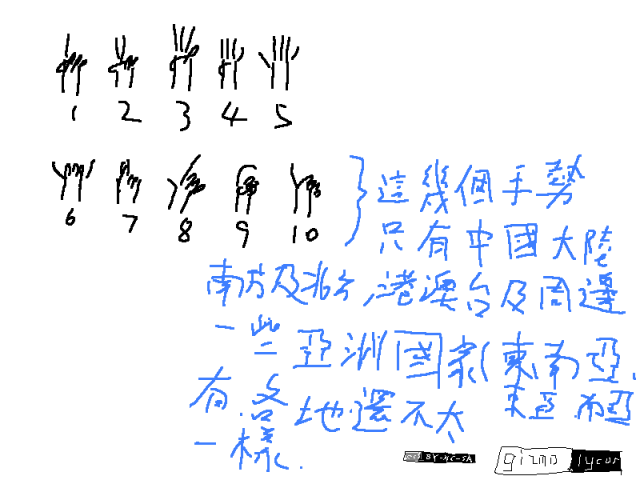 1 2 3 4 5
6 7 8 9 10
這幾個手勢
只有中國大陸
南方及北方,港澳台及周邊
一些亞洲國家(東南亞,
東亞,南亞
有.各地還不太
一樣.
cc BY-NC-SA
gizmo lycus